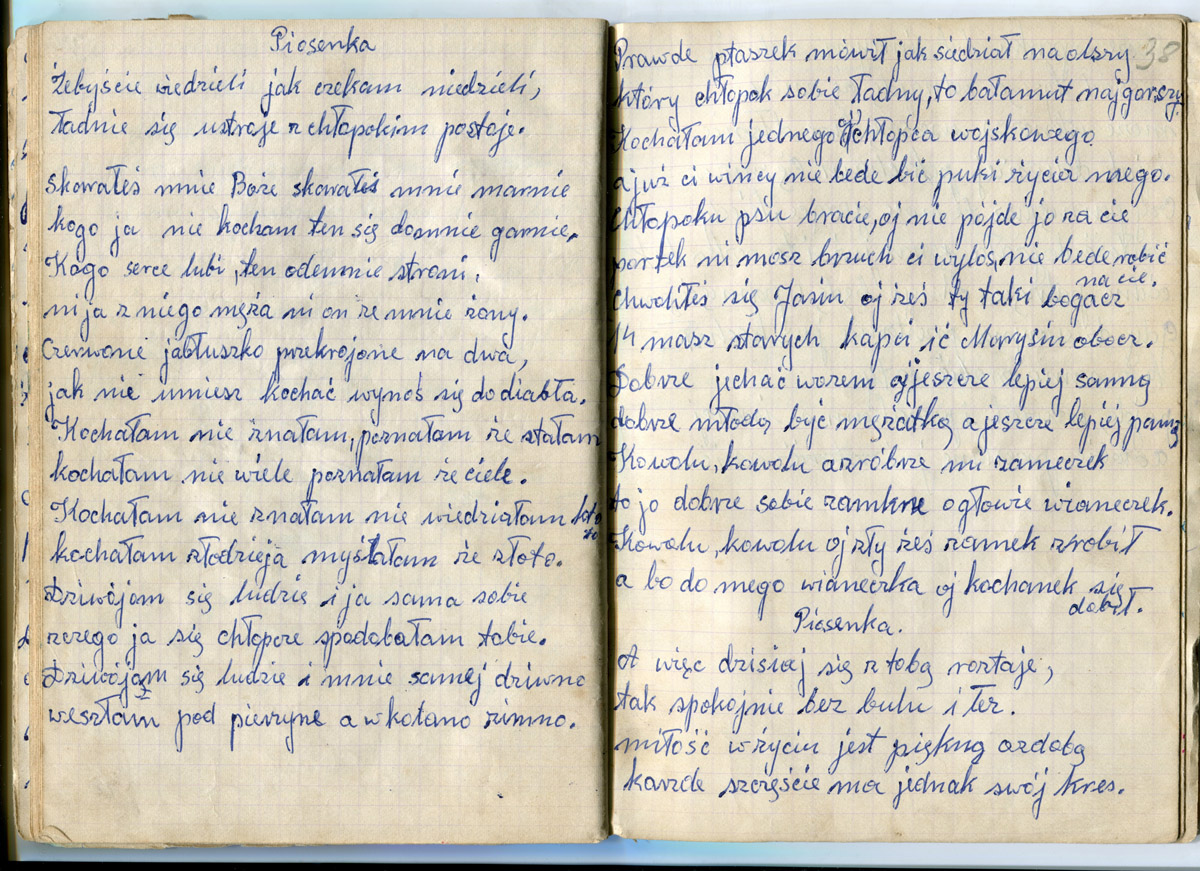 Piosenka
Żebyście wiedzieli jak czekam niedzieli,
ładnie się ustroje z chłopokim postoje.
skarałeś mnie Boże skarałeś mnie marnie
kogo ja nie kocham ten się domnie garnie.
Kogo serce lubi, ten odemnie stroni,
ni ja z niego męża ni on ze mnie żony.
Czerwone jabłuszko przekrojone na dwa,
jak nie umiesz kochać wynoś się do diabła.
Kochałam nie znałam, poznałam że stałam
kochałam nie wiele poznałam że ciele.
Kochałam nie znałam nie wiedziałam kto
to
kochałam złodzieja myślałam że złoto.
Dziwójom się ludzie i ja sama sobie
czego ja się chłopcze spodobałam tobie.
Dziwójom się ludzie i mnie samej dziwno
weszłam pod pierzyne a w kolano zimno.
38
Prawde ptaszek mówił jak siedział na olszy
który chłopok sobie ładny, to bałamut najgorszy.
Kochałam jednego chłopca wojskowego
a już ci wincy nie bede bić puki życia mego.
Chłopoku psu bracie, oj nie pójde jo za cie
portek ni mosz brzuch ci wyłos, nie bede robić
na cie.
Chwoliłeś się Jasiu oj żeś ty taki bogacz
14 masz starych kapci ić Marysiu obocz.
Dobrze jechać wozem oj jeszcze lepiej sanną
dobrze młodą być mężatką a jeszcze lepiej panną
Kowolu, kowolu a zróbze mi zameczek
to jo dobrze sobie zamkne ogłowie wianeczek.
Kowolu, kowolu oj zły żeś zamek zrobił
a bo do mego wianeczka oj kochanek się
dobił.
Piosenka.
A więc dzisiaj się z tobą roztaje,
tak spokojnie bez bulu i łez.
miłość w życiu jest piękną ozdobą
każde szczęście ma jednak swój kres.